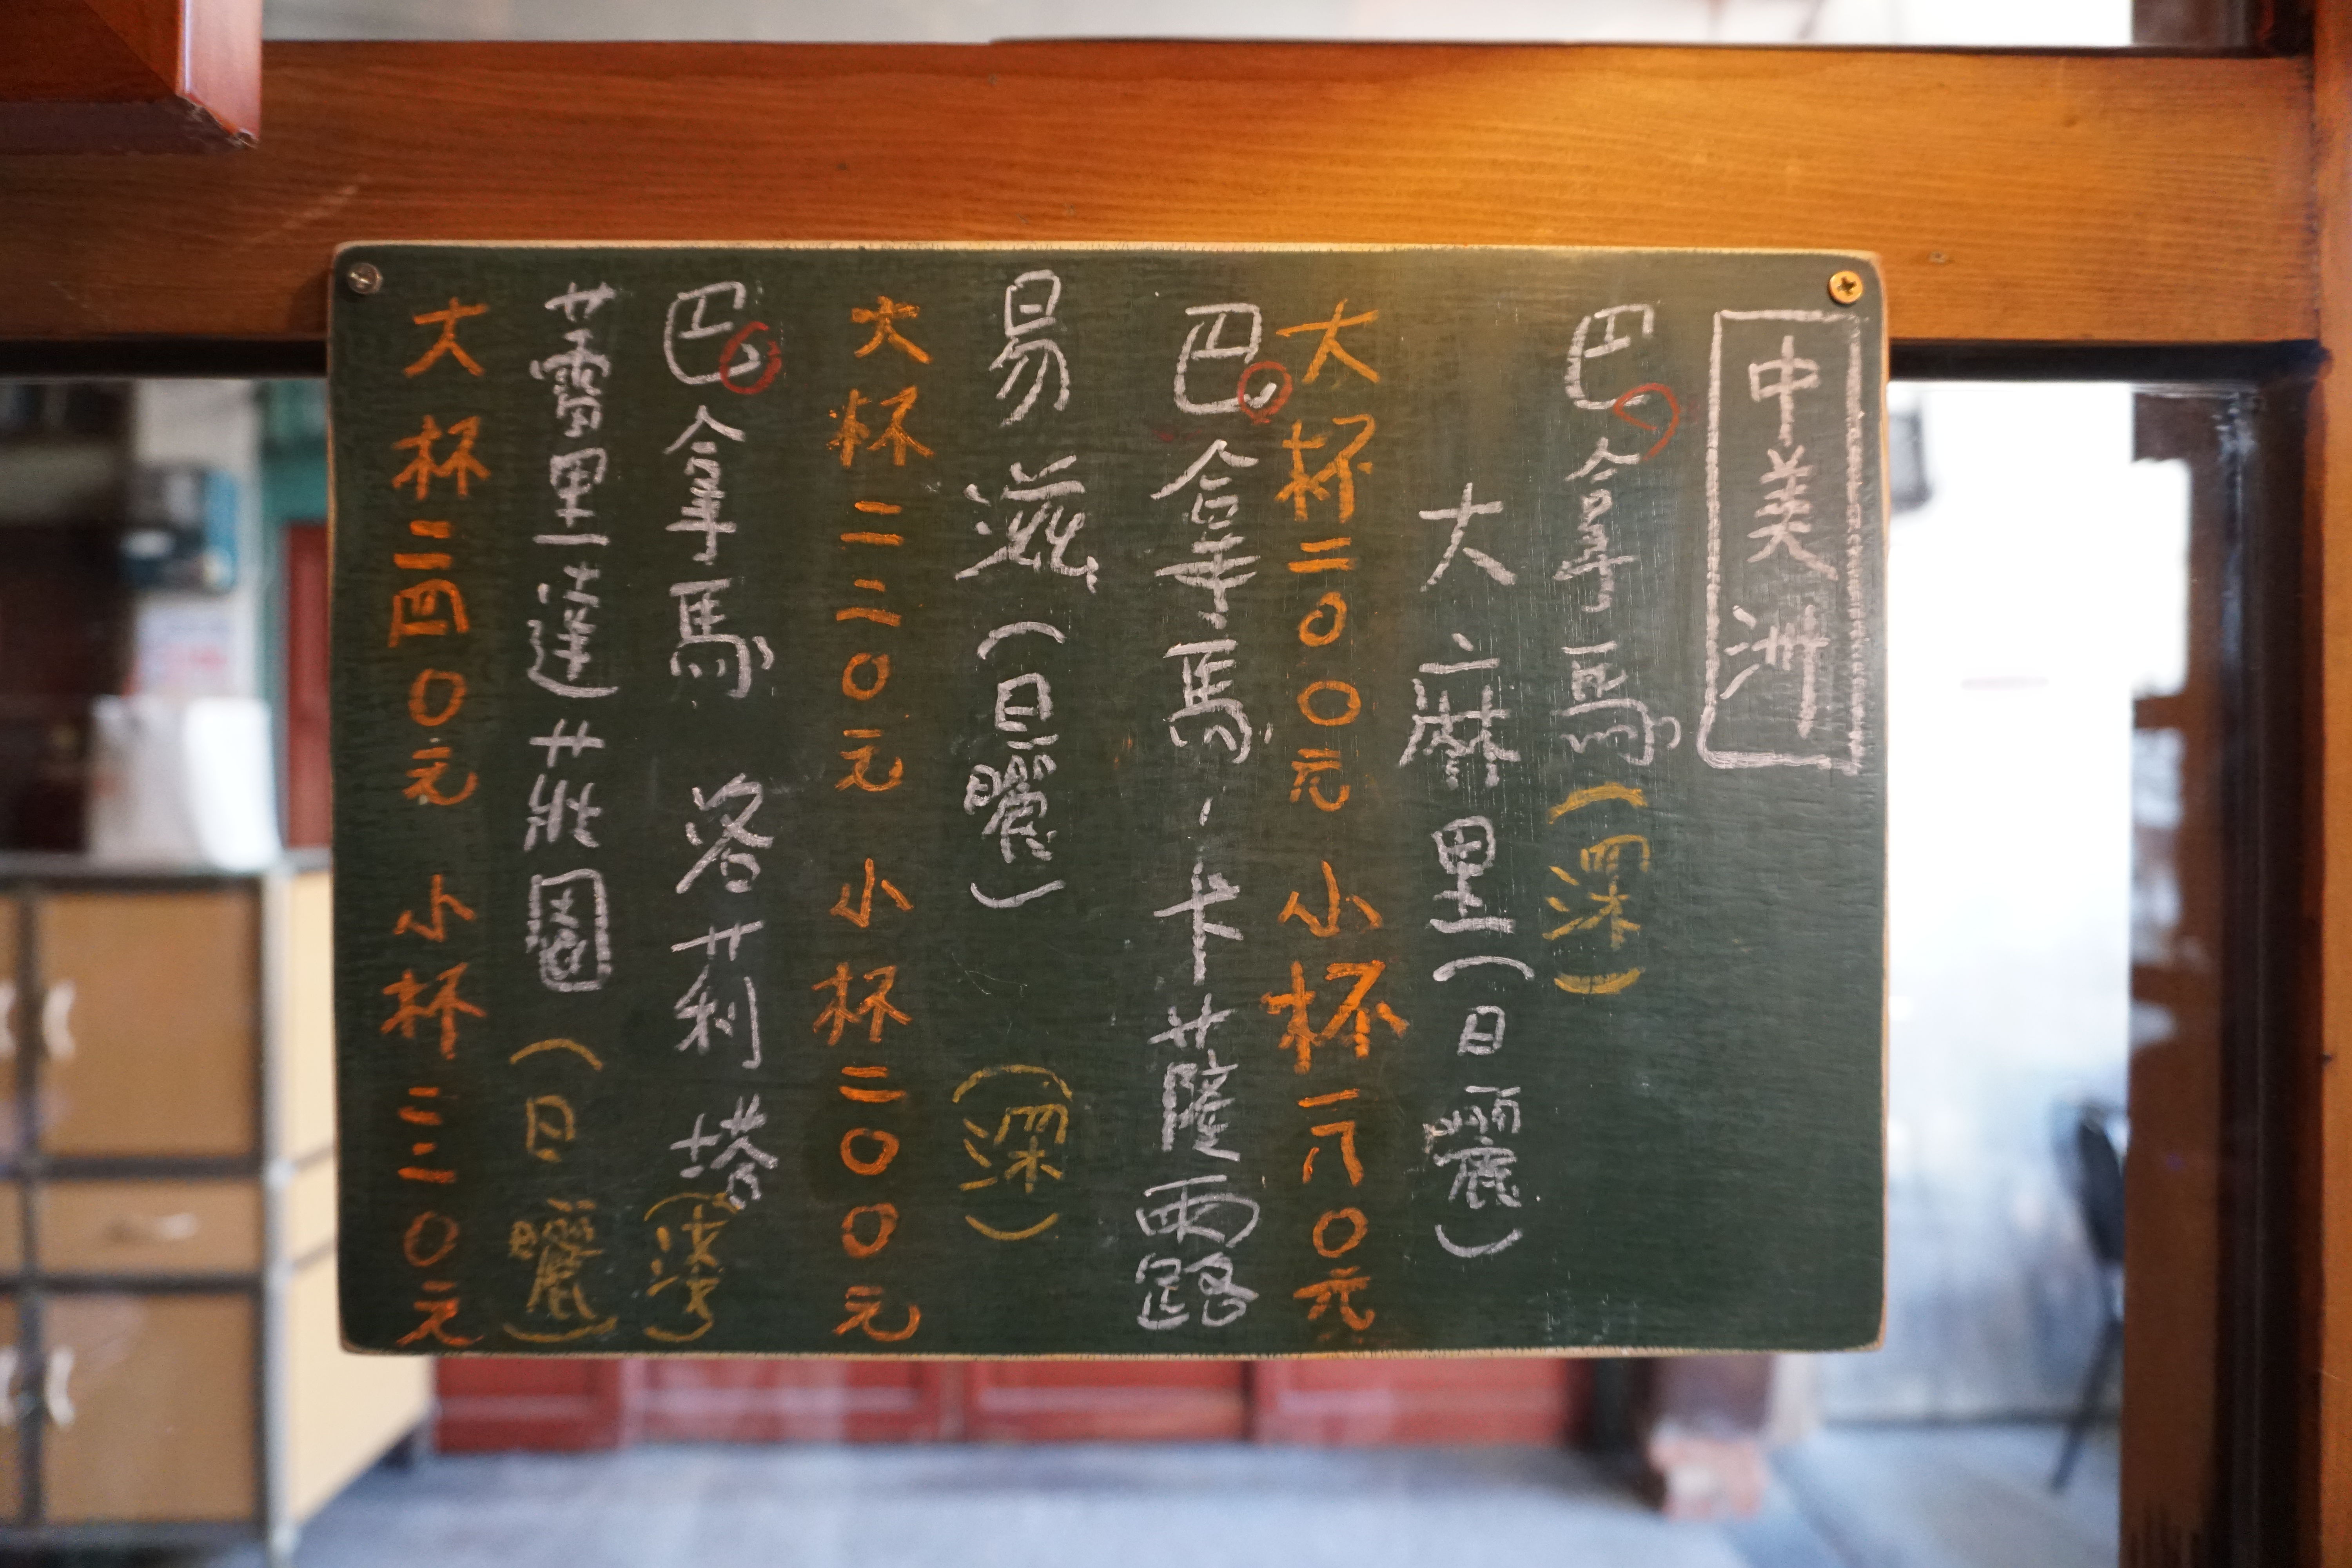 中美洲
巴拿馬(深)
大麻里(日曬)
大杯二〇〇元 小杯一八〇元
巴拿馬、卡薩露
易滋(日曬) (深)
大杯二二〇元 小杯二〇〇元
巴拿馬 洛莉塔(淺)
蕾里達莊園(日曬)
大杯二四〇元 小杯二二〇元